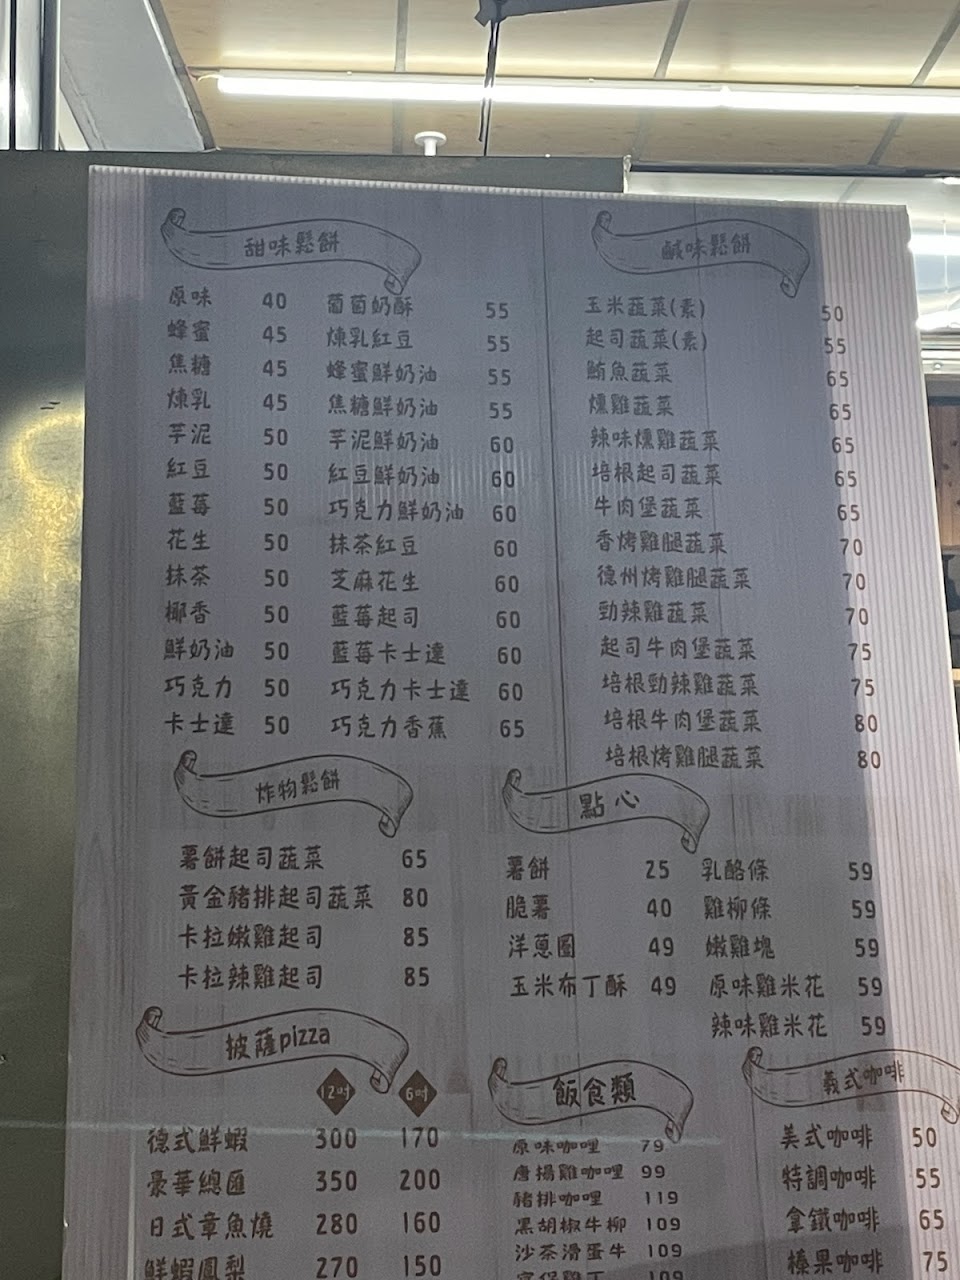 甜味鬆餅
原味 40
蜂蜜 45
焦糖 45
煉乳 45
芋泥 50
紅豆 50
藍莓 50
花生 50
抹茶 50
椰香 50
鮮奶油 50
巧克力 50
卡士達 50
葡萄奶酥 55
煉乳紅豆 55
蜂蜜鮮奶油 55
焦糖鮮奶油 55
芋泥鮮奶油 60
紅豆鮮奶油 60
巧克力鮮奶油 60
抹茶紅豆 60
芝麻花生 60
藍莓起司 60
藍莓卡士達 60
巧克力卡士達 60
巧克力香蕉 65
鹹味鬆餅
玉米蔬菜(素) 50
起司蔬菜(素) 55
鮪魚蔬菜 65
燻雞蔬菜 65
辣味燻雞蔬菜 65
培根起司蔬菜 65
牛肉堡蔬菜 65
香烤雞腿蔬菜 70
德州烤雞腿蔬菜 70
勁辣雞蔬菜 70
起司牛肉堡蔬菜 75
培根勁辣雞蔬菜 75
培根牛肉堡蔬菜 80
培根烤雞腿蔬菜 80
炸物鬆餅
薯餅起司蔬菜 65
黃金豬排起司蔬菜 80
卡拉嫩雞起司 85
卡拉辣雞起司 85
點心
薯餅 25
脆薯 40
洋蔥圈 49
玉米布丁酥 49
乳酪條 59
雞柳條 59
嫩雞塊 59
原味雞米花 59
辣味雞米花 59
披薩pizza
12吋 6吋
德式鮮蝦 300 170
豪華總匯 350 200
日式章魚燒 280 160
鮮蝦鳳梨 270 150
飯食類
原味咖哩 79
唐揚雞咖哩 99
豬排咖哩 119
黑胡椒牛柳 109
沙茶滑蛋牛 109
宮保雞丁 109
義式咖啡
美式咖啡 50
特調咖啡 55
拿鐵咖啡 65
榛果咖啡 75